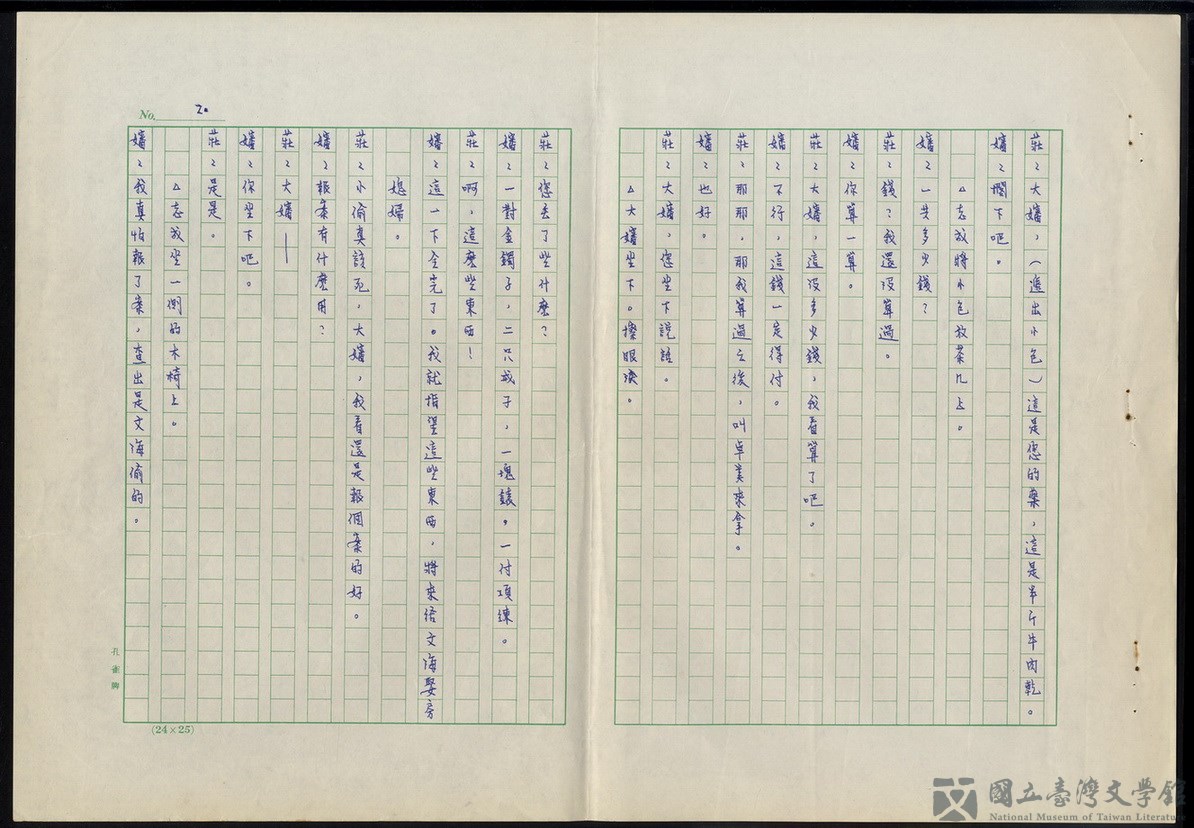 莊:大嬸,(遞出小包)這是您的藥,這是半斤牛肉乾。
嬸:擱下吧。
△志成將小包放茶几上。
嬸:一共多少錢?
莊:錢?我還沒算過。
嬸:你算一算。
莊:大嬸,這沒多少錢,我看算了吧。
嬸:不行,這錢一定得付。
莊:那那,那我算過之後,叫卓美來拿。
嬸:也好。
莊:大嬸,您坐下說話。
△大嬸坐下。擦眼淚。
No. 20
莊:您丟了些什麼?
嬸:一對金鐲子,二只戒子,一塊錶,一付項鍊。
莊:啊,這麼些東西!
嬸:這一下全完了。我就指望這些東西,將來給文海娶房
媳婦。
莊:小偷真該死,大嬸,我看還是報個案的好。
嬸:報案有什麼用?
莊:大嬸——
嬸:你坐下吧。
莊:是是。
△志成坐一側的木椅上。
嬸:我真怕報了案,查出是文海偷的。
孔雀牌
(24×25)
國立臺灣文學館
National Museum of Taiwan Literature